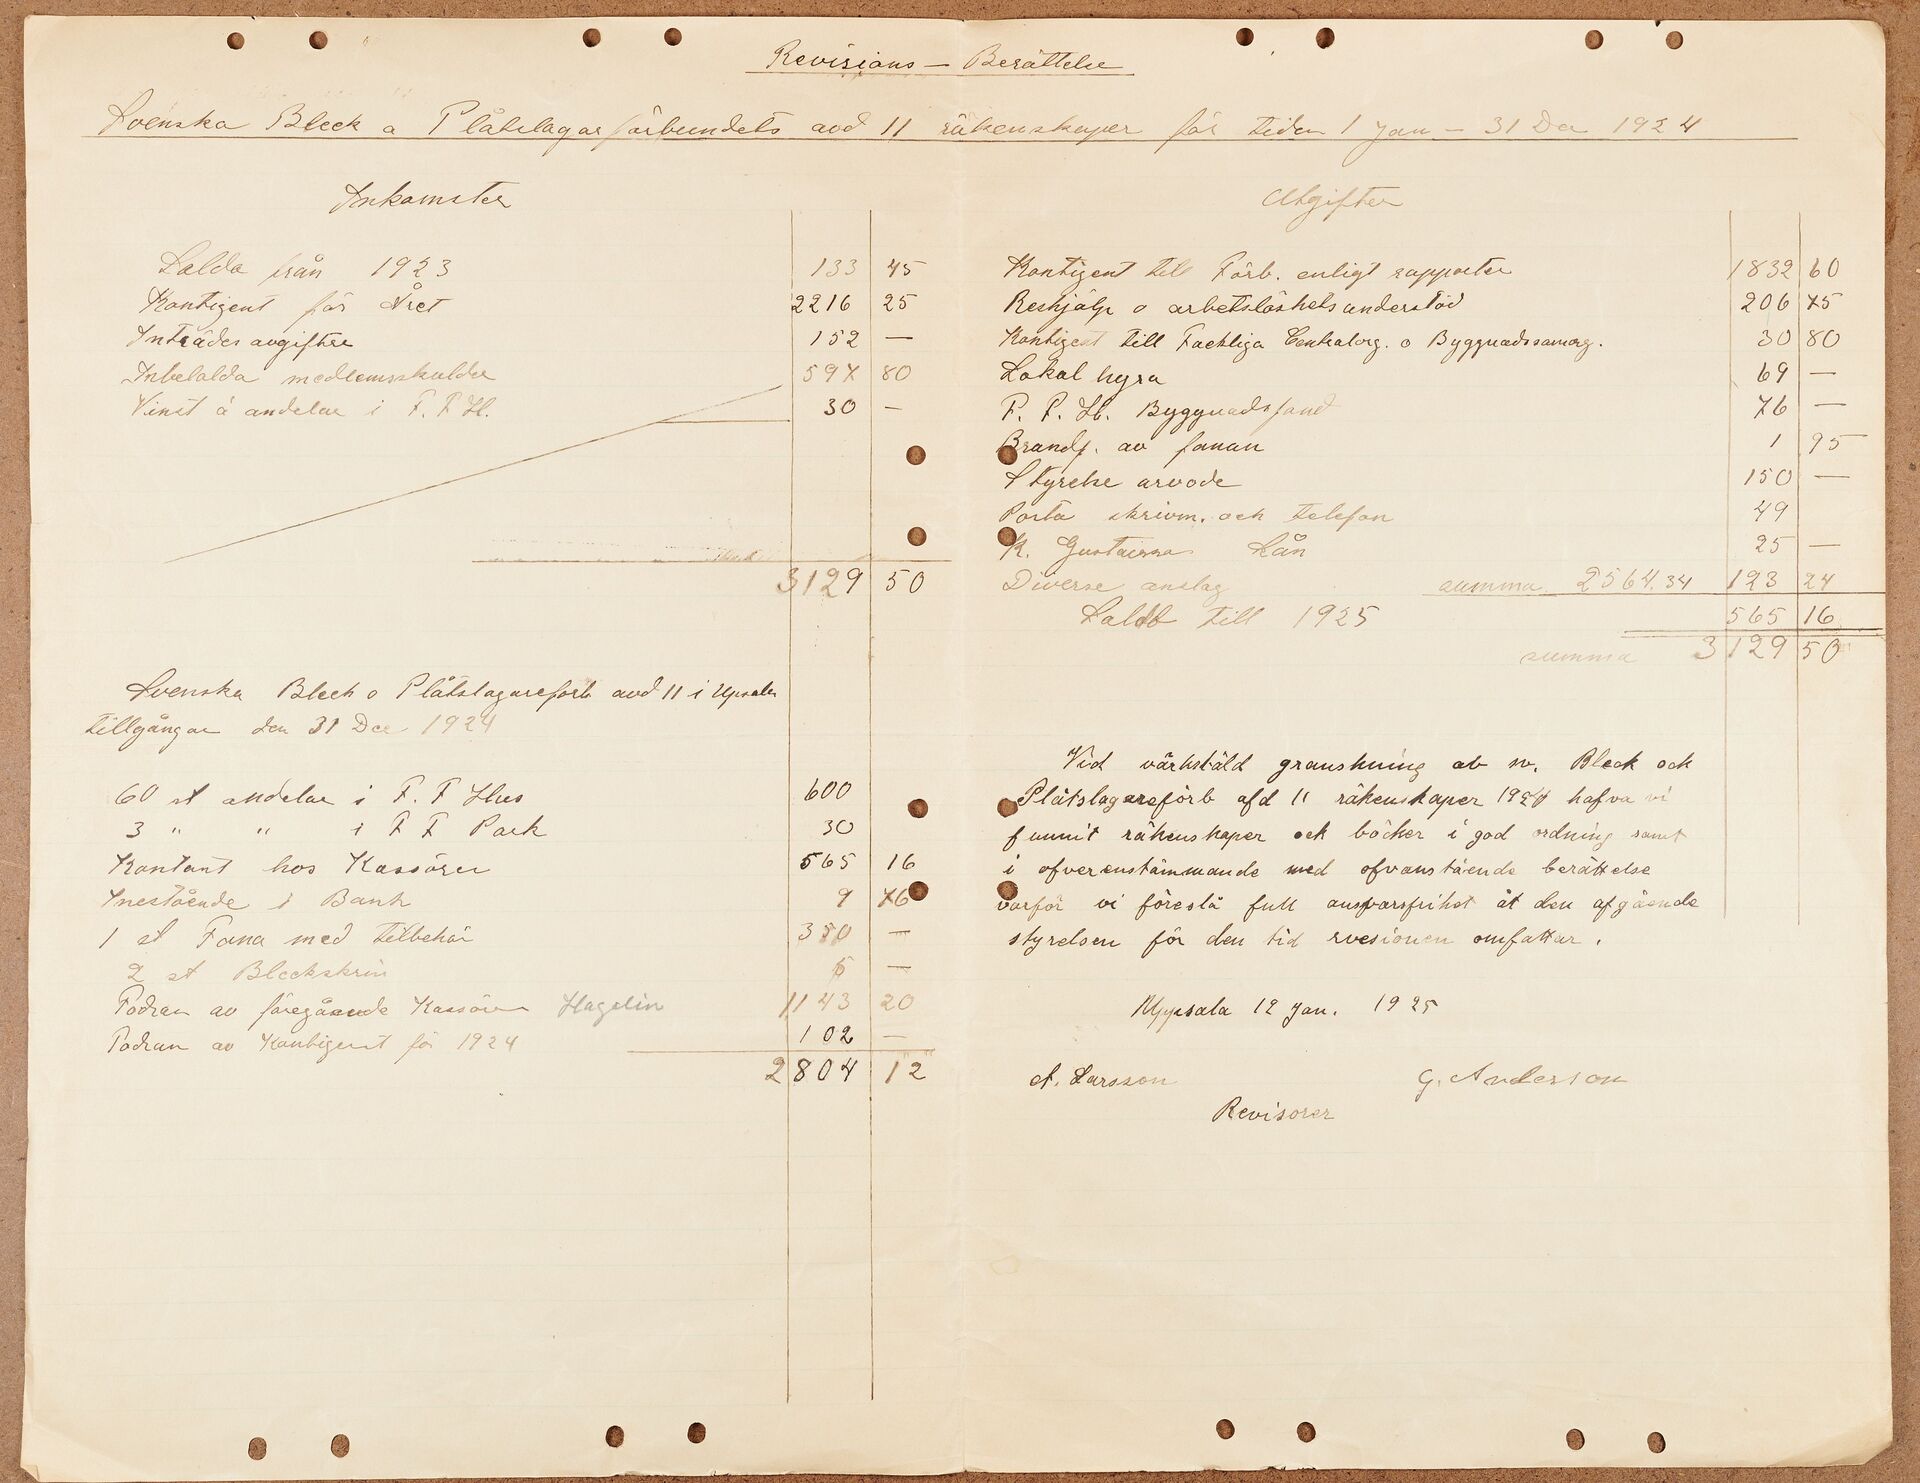 Revisions – Berättelse
Svenska Bleck o Plåtslagarförbundets avd 11 räkenskaper för tiden 1 Jan – 31 Dec 1924
Inkomster
Saldo från 1923 133 45
Kontigent för Året 2216 25
Inträdesavgifter 152 —
Inbetalda medlemsskulder 597 80
Vinst å andelar i F. F. H. 30 —
3129 50
Svenska Bleck o Plåtslagareförb avd 11 i Upsala
tillgångar den 31 Dec 1924
60 st andelar i F. F Hus 600
3 " " i F F Park 30
Kontant hos Kassören 565 16
Inestående i Bank 9 76
1 st Fana med tilbehör 350 —
2 st Bleckskrin 5 —
Fodran av föregående Kassören Hagelin 1143 20
Fodran av Kontigent för 1924 102 —
2804 12
Utgifter
Kontigent till Förb. enligt rapporter 1832 60
Reshjälp o arbetslöshetsunderstöd 206 75
Kontigent till Fackliga Centralorg. o Byggnadssamorg. 30 80
Lokal hyra 69 —
F. F. H. Byggnadsfond 76 —
Brandf. av fanan 1 95
Styrelse arvode 150 —
Porto skrivm. och telefon 49
K. Lån 25 —
Diverse anslag summa 2564.34 123 24
Saldo till 1925 565 16
summa 3129 50
Vid värkstäld granskning av sv. Bleck och
Plåtslagareförb afd 11 räkenskaper 1924 hafva vi
funnit räkenskaper och böcker i god ordning samt
i ofverenstämmande med ofvanstående berättelse
varför vi föreslå full ansvarsfrihet åt den afgående
styrelsen för den tid rvesionen omfattar.
Uppsala 12 Jan. 1925
A. Larsson G. Anderson
Revisorer